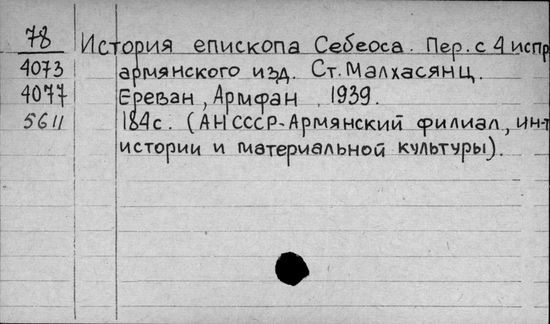 78 История епископа Себеоса. Пер. с 4 испр
4073 армянского изд. Ст. Малхасянц.
4077 Ереван, Армфан, 1939.
5611 184с. (АН СССР-Армянский филиал, ин-т
истории и материальной культуры).